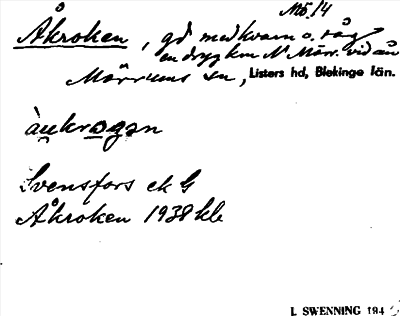 Mö. 14
Åkroken, gd med kvarn o. såg
en dryg km N Mörr. vid ån
Mörrums sn, Listers hd, Blekinge län.
àu̯krogən
Svensfors ek G
Åkroken 1938 kbl
I. SWENNING 194